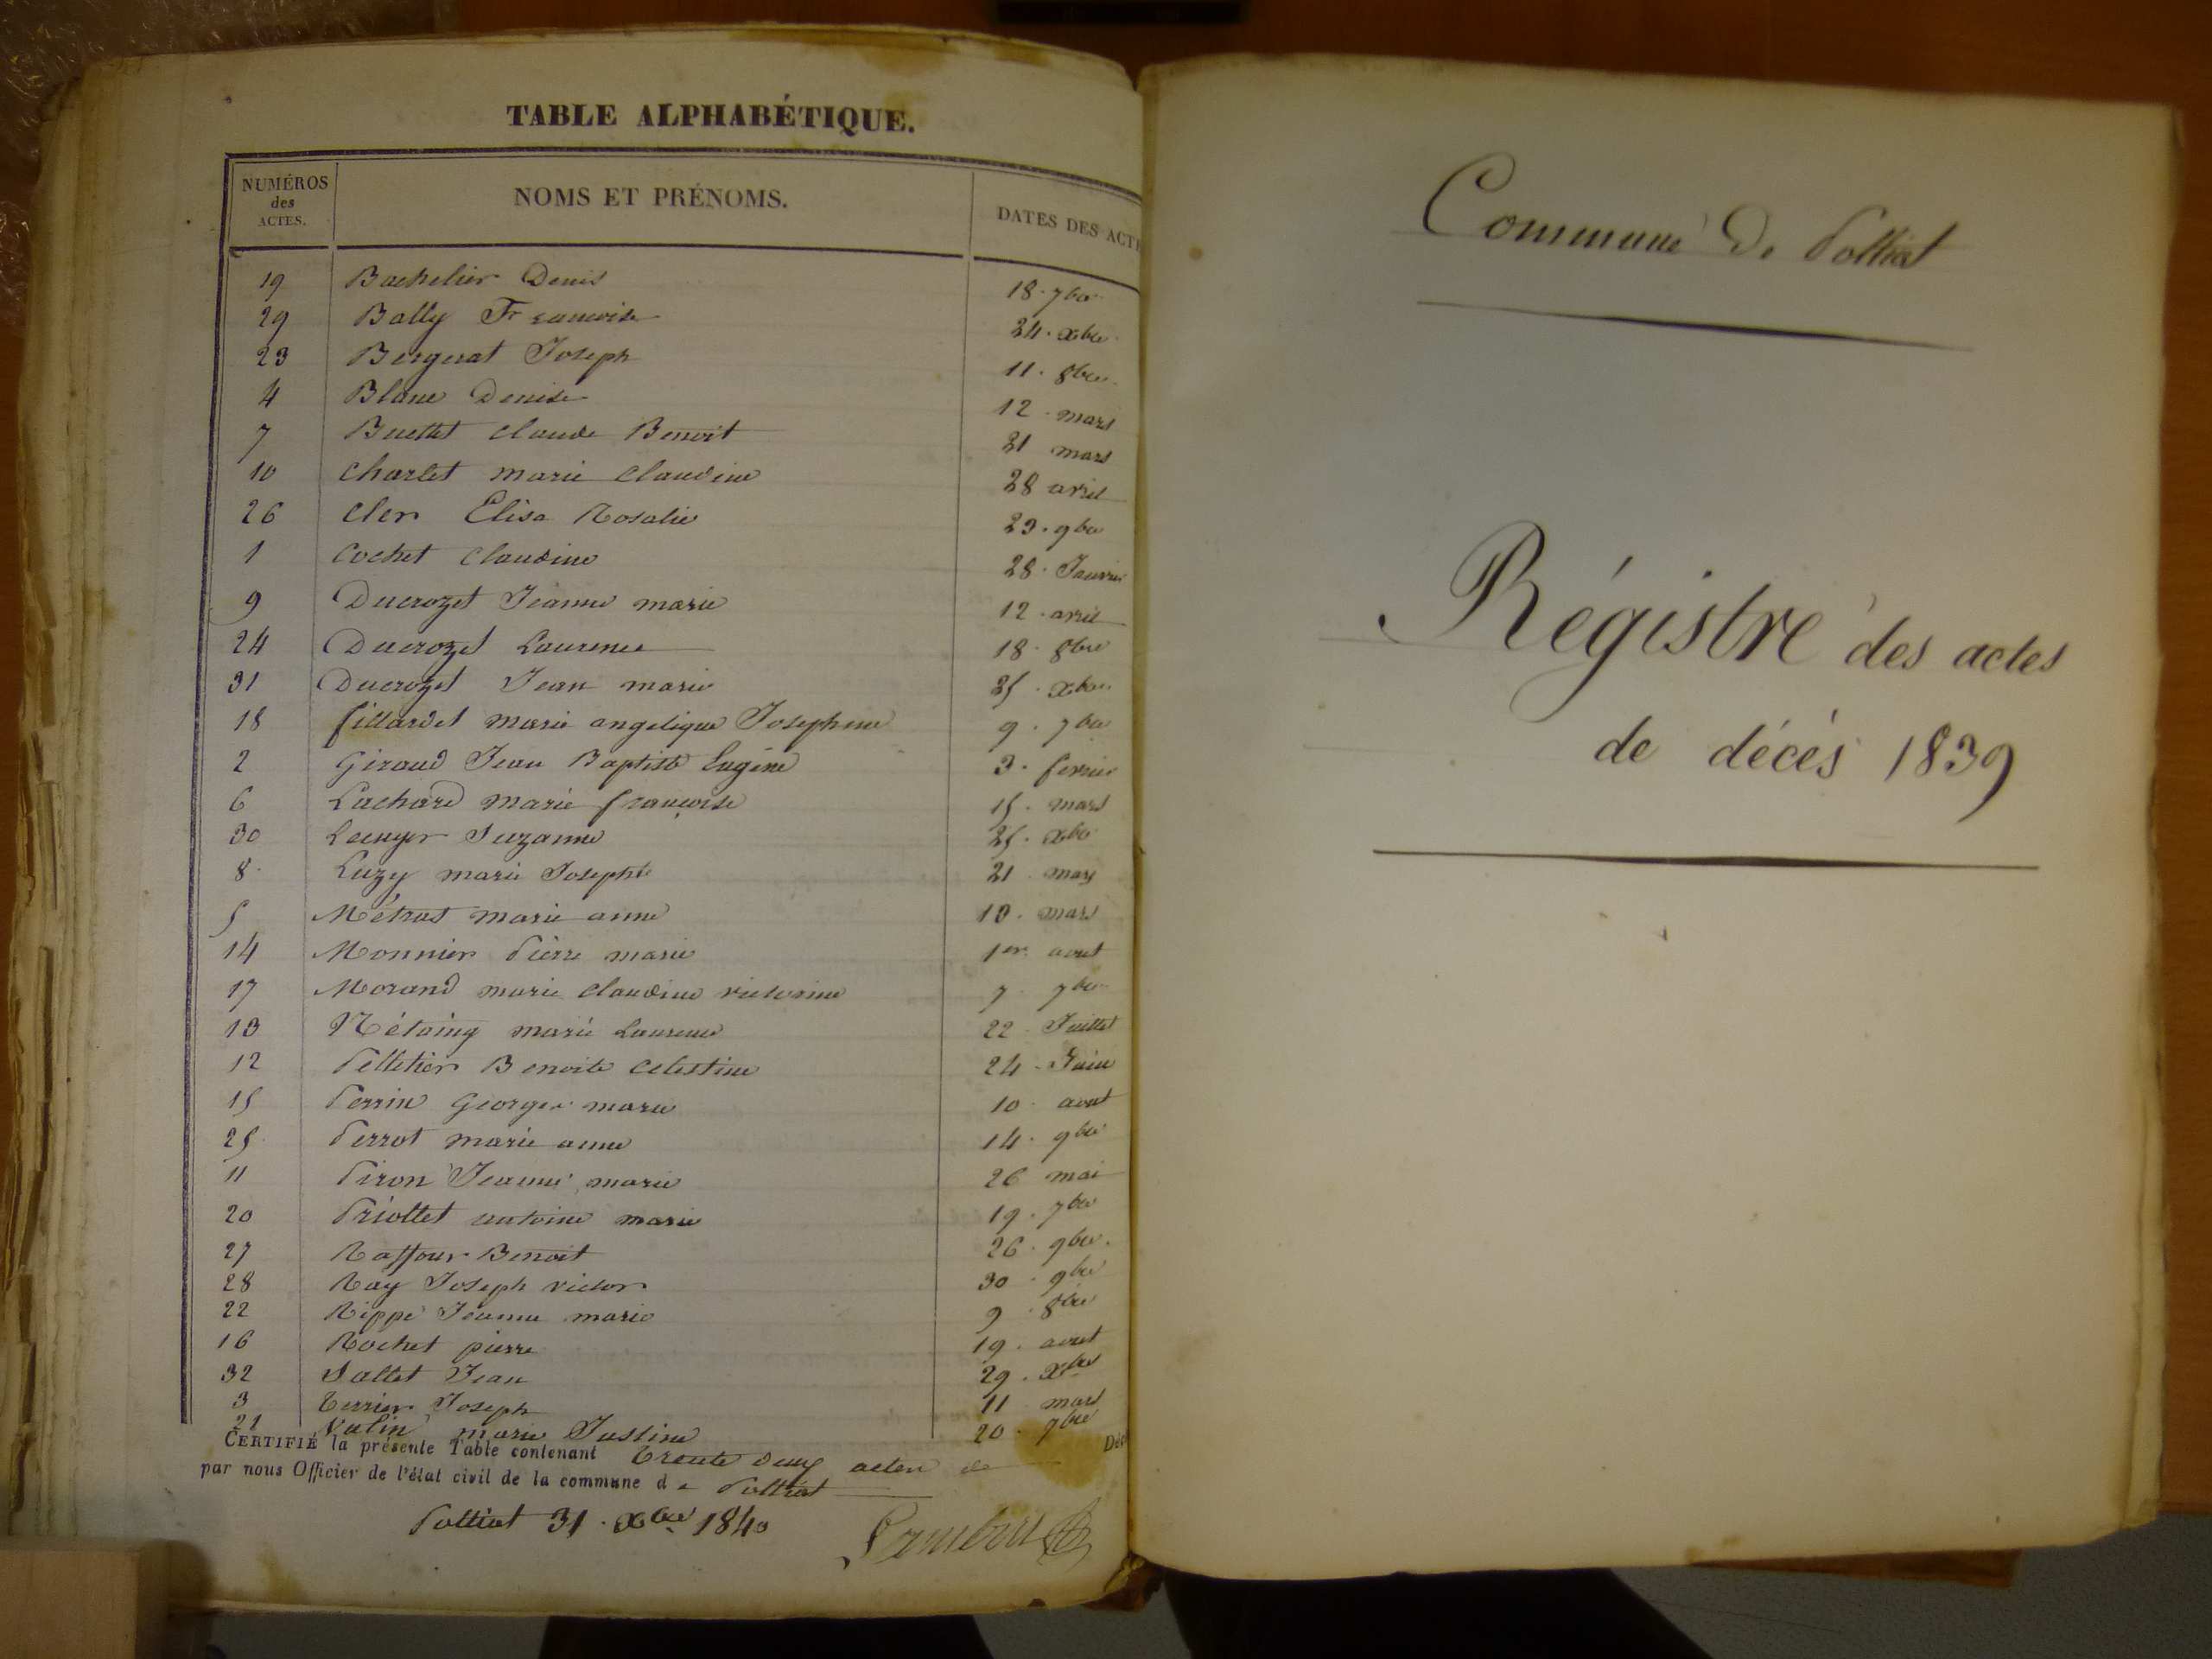 TABLE ALPHABÉTIQUE.
NUMÉROS des ACTES. NOMS ET PRÉNOMS. DATES DES ACTE
19 Bachelier Denis 18. 7bre
29 Bally Françoise 24. xbre
23 Bergerat Joseph 11. 8bre
4 Blanc Denise 12. mars
7 Buettet Claude Benoit 21 mars
10 Charlet marie Claudine 28 avril
26 Cler Elisa Rosalie 23. 9bre
1 Cochet Claudine 28. Janvier
9 Ducrozet Jeanne marie 12. avril
24 Ducrozet Laurence 18. 8bre
31 Ducrozet Jean marie 25. xbre
18 fillardet marie angelique Josephine 9. 7bre
2 Giraud Jean Baptiste Eugène 3. fevrier
6 Lachard marie françoise 15. mars
30 Lecuyer Suzanne 25. xbre
8. Luzy marie Josephte 21 mars
5 Métras marie anne 13. mars
14 Monnier Pierre marie 1er. aout
17 Morand marie Claudine victorine 7. 7bre
13 Nétaing marie Laurence 22. Juillet
12 Pelletier Benoite Celestine 24. Juin
15 Perrin George marie 10. aout
25. Perrot marie anne 14. 9bre
11 Piron Jeanne marie 26 mai
20 Priollet antoine marie 19. 7bre
27 Raffour Benoit 26. 9bre.
28 Ray Joseph victor 30. 9bre
22 Rippe Jeanne marie 9. 8bre
16 Rochet pierre 19. aout
32 Sallet Jean 29. xbre
3 Terrier Joseph 11 mars
21 Vulin marie Justine 20. 7bre
CERTIFIÉ la présente Table contenant trente deux actes de Déc
par nous Officier de l'état civil de la commune de Polliat
Polliat 31. xbre 1840
Commune De Polliat
Régistre des actes
de décès 1839